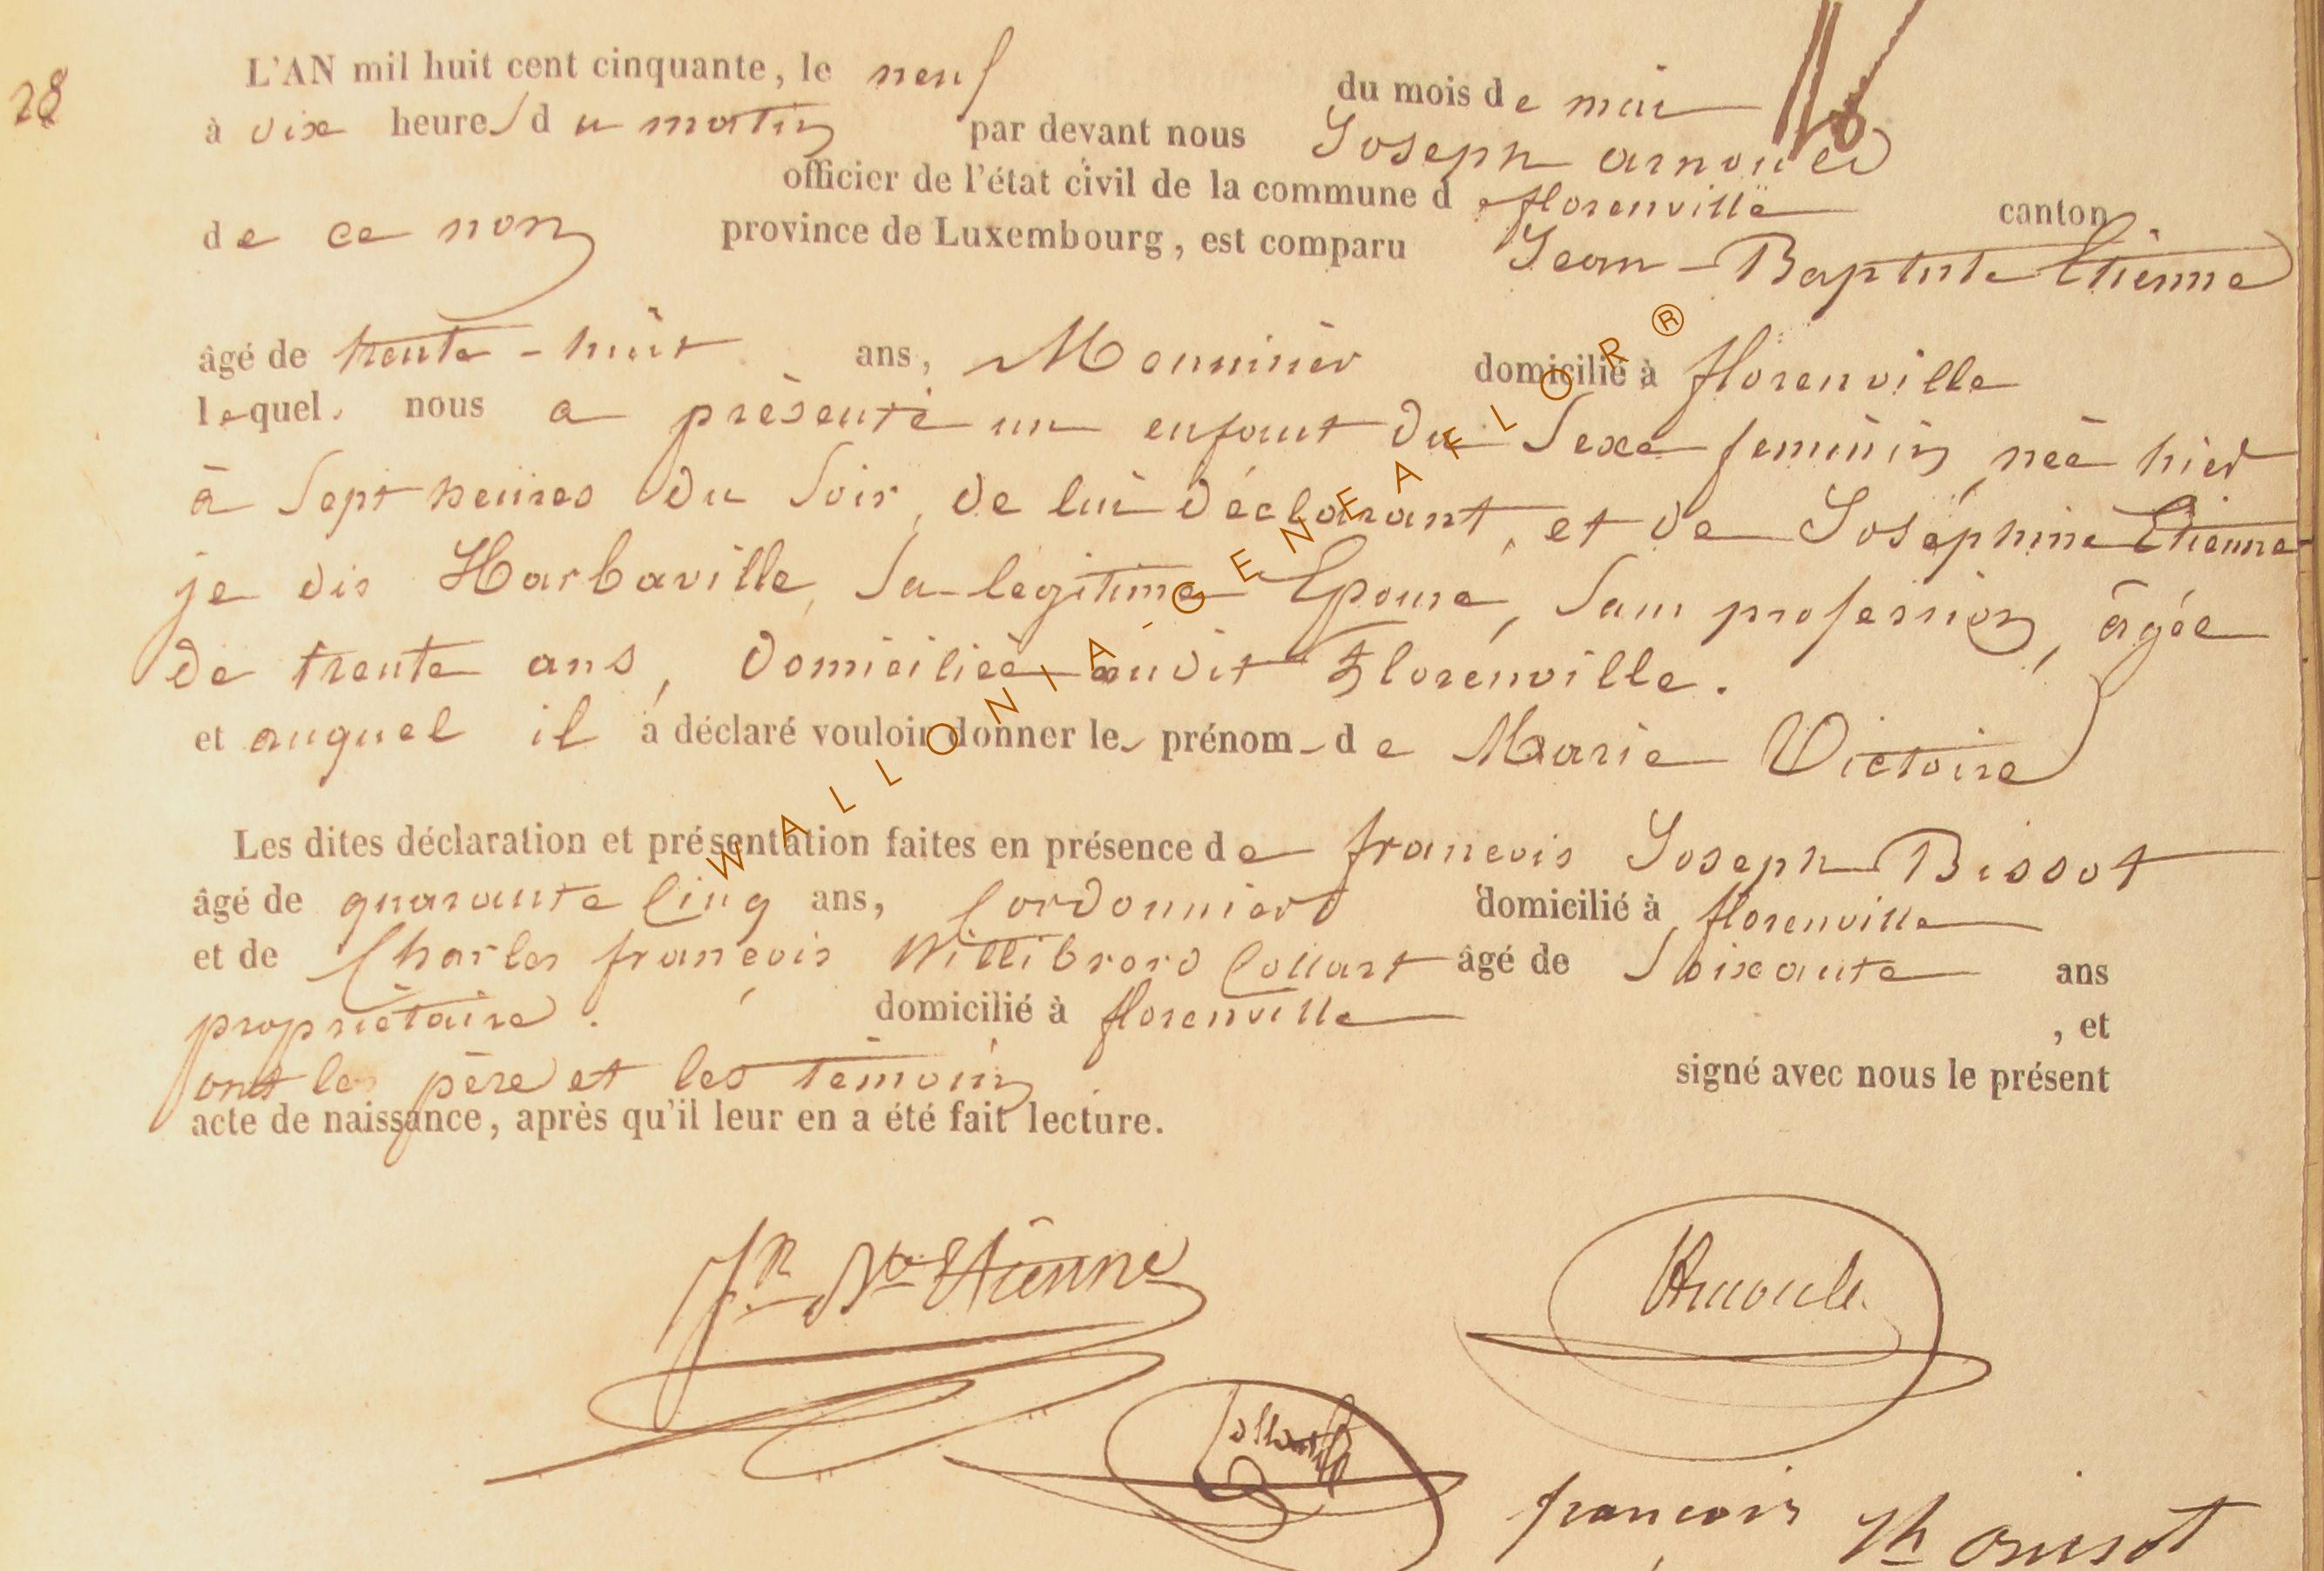 28
L'AN mil huit cent cinquante, le neuf du mois de mai
à dix heures du matin par devant nous Joseph arnould
officier de l'état civil de la commune de florenville canton
de ce nom province de Luxembourg, est comparu Jean-Baptiste Etienne
âgé de trente-huit ans, Meunier domicilié à florenville
lequel nous a présenté un enfant du Sexe feminin née hier
à Sept heures du Soir, de lui déclarant, et de Joséphine Etienne
je dis Harbaville, Sa legitime Epouse, Sans profession, âgée
de trente ans, domiciliée audit Florenville.
et auquel il a déclaré vouloir donner le prénom de Marie Victoire
Les dites déclaration et présentation faites en présence de francois Joseph Bissot
âgé de quarante Cinq ans, Cordonnier domicilié à florenville
et de Charles françois Willibrord Collart âgé de Soixante ans
propriétaire. domicilié à florenville , et
ont le père et les témoins signé avec nous le présent
acte de naissance, après qu'il leur en a été fait lecture.
Jn Bte Etienne
Arnould.
Collart
françois Jh
WALLONIA-GENEAFLOR ®